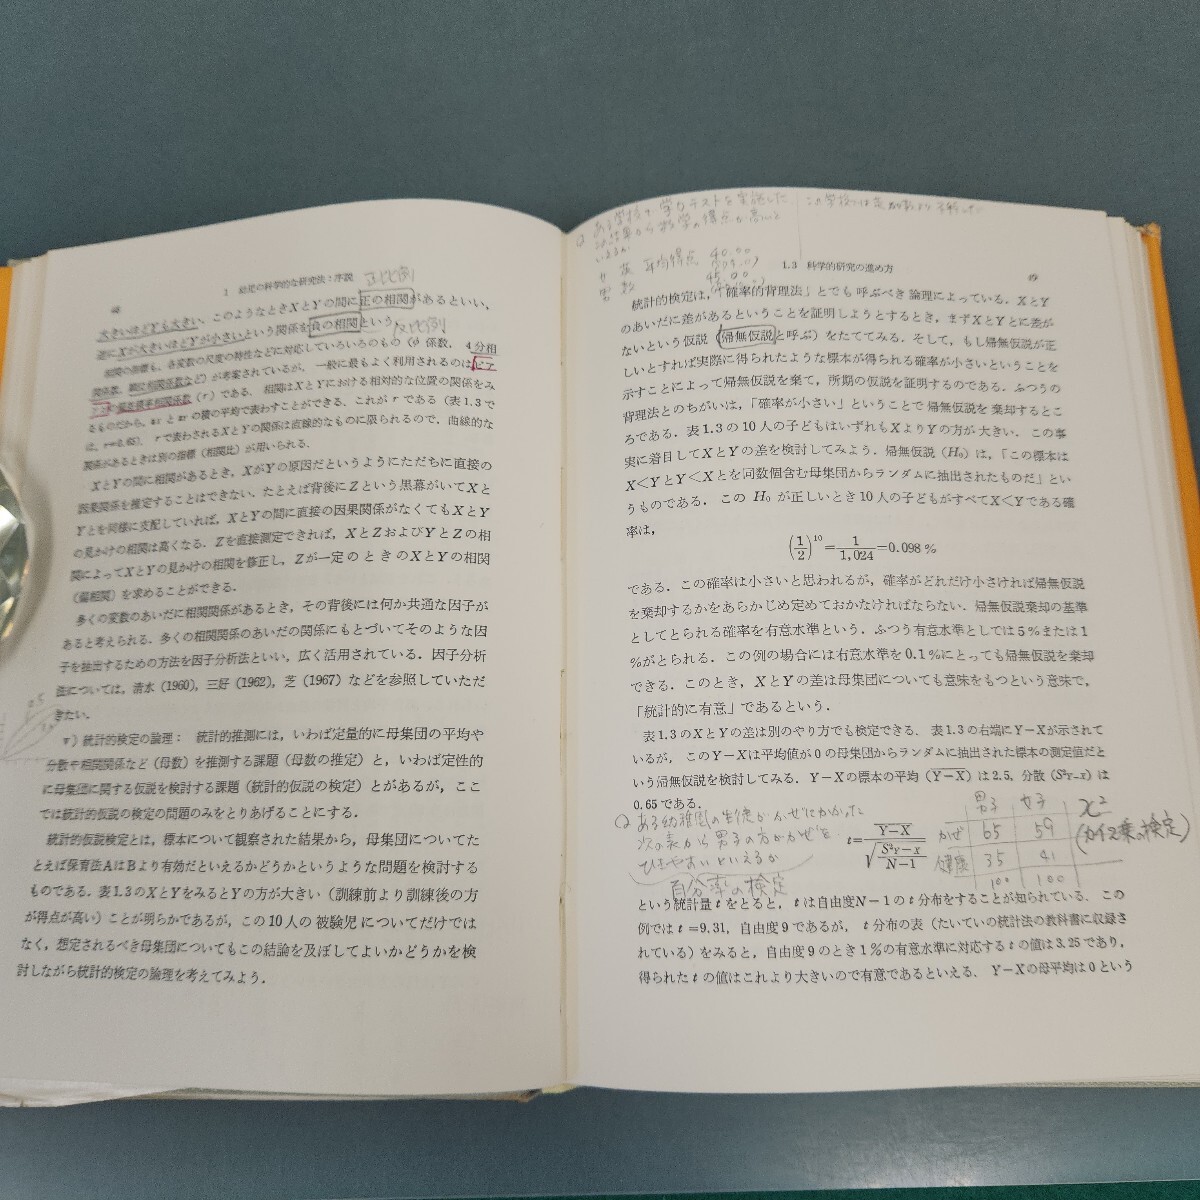 1 幼児の科学的な研究法：序説
正比例
大きいほどYも大きい，このようなときXとYの間に正の相関があるといい，
逆にXが大きいほどYが小さいという関係を負の相関という．
反比例
相関の指標も，各変数の尺度の特性などに対応していろいろのもの（φ係数，4分相
関係数，順位相関係数など）が考案されているが，一般に最もよく利用されるのはピア
ソンの偏差積率相関係数（r）である．相関はXとYにおける相対的な位置の関係をみ
るものだから，zxとzYの積の平均で表わすことができる．これがrである（表1.3で
は，r=0.65）．rで表わされるXとYの関係は直線的なものに限られるので，曲線的な
関係があるときは別の指標（相関比）が用いられる．
XとYの間に相関があるとき，XがYの原因だというようにただちに直接の
因果関係を推定することはできない．たとえば背後にZという黒幕がいてXと
Yとを同様に支配していれば，XとYの間に直接の因果関係がなくてもXとY
の見かけの相関は高くなる．Zを直接測定できれば，XとZおよびYとZの相
関によってXとYの見かけの相関を修正し，Zが一定のときのXとYの相関
（偏相関）を求めることができる．
多くの変数のあいだに相関関係があるとき，その背後には何か共通な因子が
あると考えられる．多くの相関関係のあいだの関係にもとづいてそのような因
子を抽出するための方法を因子分析法といい，広く活用されている．因子分析
法については，清水（1960），三好（1962），芝（1967）などを参照していただ
きたい．
v）統計的検定の論理：　統計的推測には，いわば定量的に母集団の平均や
分散や相関関係など（母数）を推測する課題（母数の推定）と，いわば定性的
に母集団に関する仮説を検討する課題（統計的仮説の検定）とがあるが，ここ
では統計的仮説の検定の問題のみをとりあげることにする．
統計的仮説検定とは，標本について観察された結果から，母集団についてた
とえば保育法AはBより有効だといえるかどうかというような問題を検討する
ものである．表1.3のXとYをみるとYの方が大きい（訓練前より訓練後の方
が得点が高い）ことが明らかであるが，この10人の被験児についてだけでは
なく，想定されるべき母集団についてもこの結論を及ぼしてよいかどうかを検
討しながら統計的検定の論理を考えてみよう．
Q ある学校で学力テストを実施した
結果から数学の得点が高いと
いえるか
平均得点 40.00
45.00
1.3 科学的研究の進め方
49
統計的検定は，「確率的背理法」とでも呼ぶべき論理によっている．XとY
のあいだに差があるということを証明しようとするとき，まずXとYとに差が
ないという仮説（帰無仮説と呼ぶ）をたててみる．そして，もし帰無仮説が正
しいとすれば実際に得られたような標本が得られる確率が小さいということを
示すことによって帰無仮説を棄て，所期の仮説を証明するのである．ふつうの
背理法とのちがいは，「確率が小さい」ということで帰無仮説を棄却するとこ
ろである．表1.3の10人の子どもはいずれもXよりYの方が大きい．この事
実に着目してXとYの差を検討してみよう．帰無仮説（H₀）は，「この標本は
X<YとY<Xとを同数個含む母集団からランダムに抽出されたものだ」とい
うものである．このH₀が正しいとき10人の子どもがすべてX<Yである確
率は，
(1/2)¹⁰=1/1,024=0.098％
である．この確率は小さいと思われるが，確率がどれだけ小さければ帰無仮説
を棄却するかをあらかじめ定めておかなければならない．帰無仮説棄却の基準
としてとられる確率を有意水準という．ふつう有意水準としては5％または1
％がとられる．この例の場合には有意水準を0.1％にとっても帰無仮説を棄却
できる．このとき，XとYの差は母集団についても意味をもつという意味で，
「統計的に有意」であるという．
表1.3のXとYの差は別のやり方でも検定できる．表1.3の右端にY−Xが示されて
いるが，このY−Xは平均値が0の母集団からランダムに抽出された標本の測定値だと
いう帰無仮説を検討してみる．Y−Xの標本の平均（Y−X）は2.5，分散（S²Y−X）は
0.65である．
Q ある幼稚園の生徒がかぜにかかった
次の表から男子の方がかぜを
ひきやすいといえるか
百分率の検定
t=Y−X/√(S²Y−X/N−1)
男子 女子
かぜ 65 59
健康 35 41
100 100
χ²
(カイ２乗の検定)
という統計量tをとると，tは自由度N−1のt分布をすることが知られている．この
例ではt=9.31，自由度9であるが，t分布の表（たいていの統計法の教科書に収録さ
れている）をみると，自由度9のとき1％の有意水準に対応するtの値は3.25であり，
得られたtの値はこれより大きいので有意であるといえる．Y−Xの母平均は0という